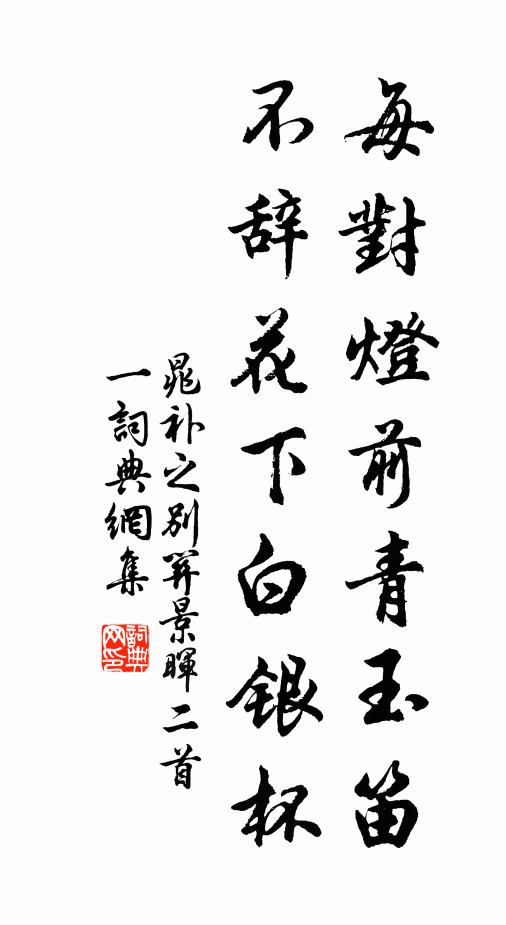 每對燈前青玉笛
不辞花下白銀杯
晁补之别景暉二首
一詞典網集
詞典
网印